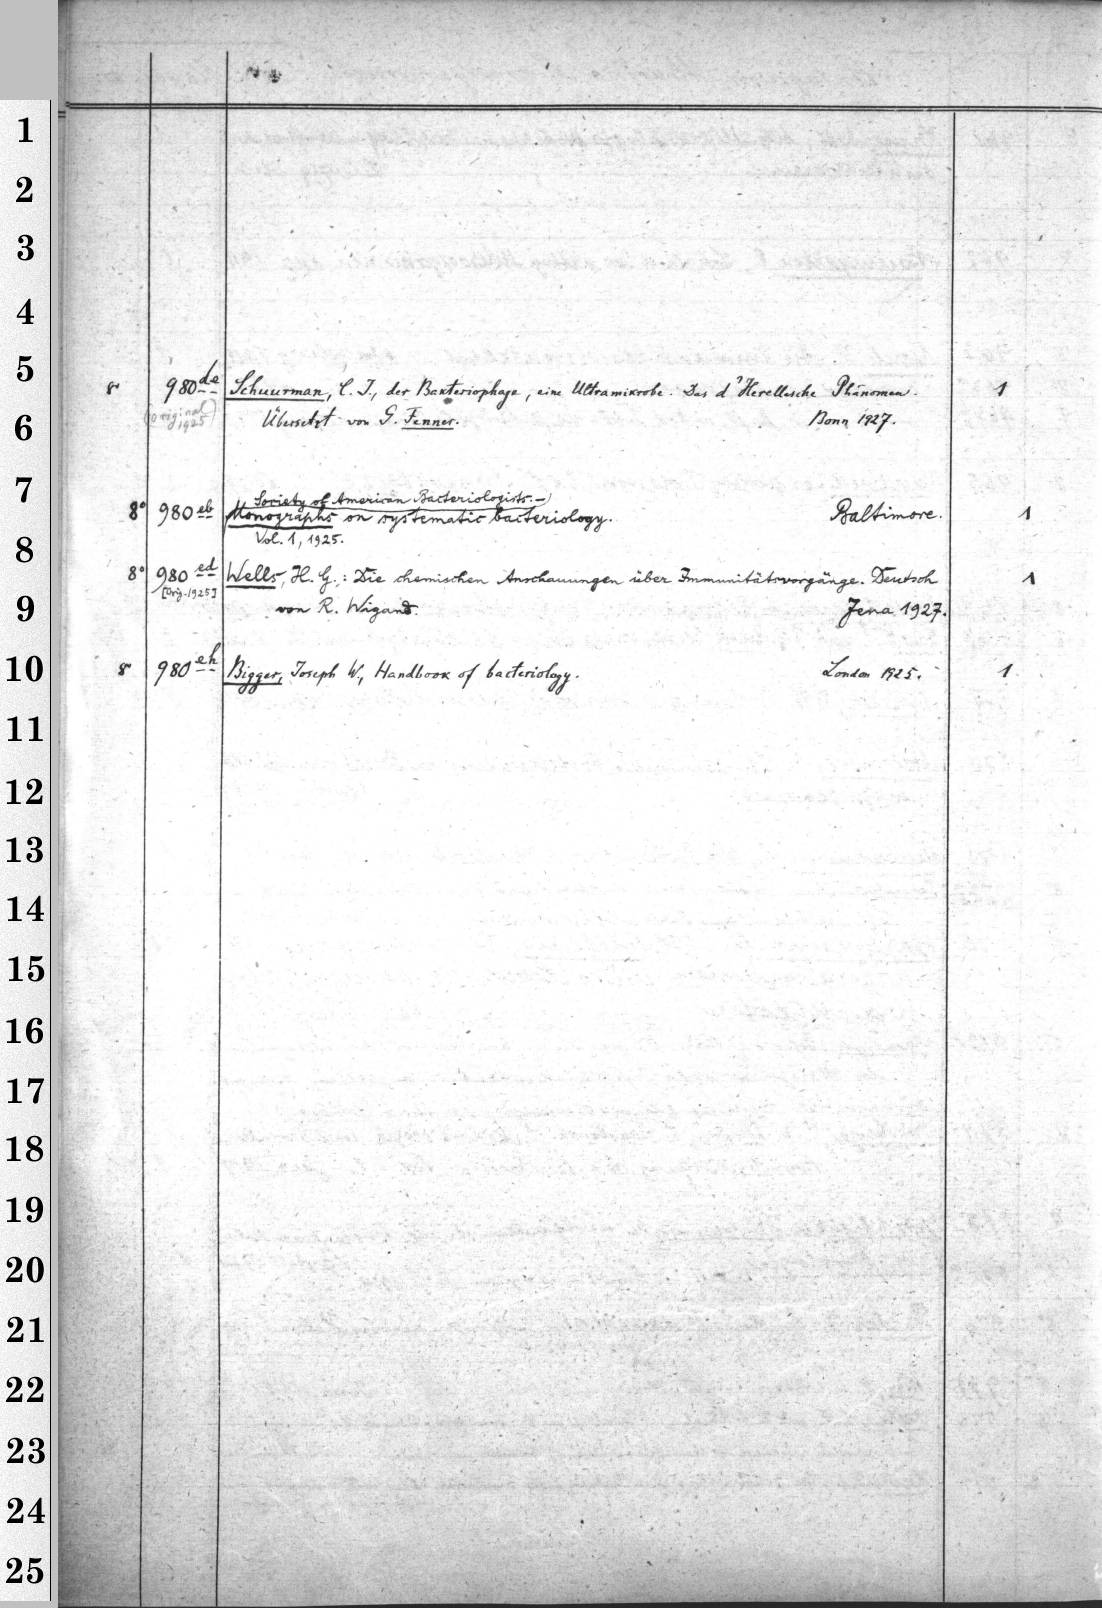 1
2
3
4
5
8° 980 de Schuurman, C. J., der Bakteriophage, eine Ultramikrobe. Das d'Herellesche Phänomen. 1
(Original 1925) Übersetzt von G. Fenner. Bonn 1927.
6
7
Society of American Bacteriologists. –)
8° 980 eb Monographs on systematic bacteriology. Baltimore. 1
Vol. 1, 1925.
8
8° 980 ed Wells, H. G.: Die chemischen Anschauungen über Immunitätsvorgänge. Deutsch 1
[Orig. 1925] von R. Wigand. Jena 1927.
9
10
8° 980 eh Bigger, Joseph W., Handbook of bacteriology. London 1925. 1
11
12
13
14
15
16
17
18
19
20
21
22
23
24
25